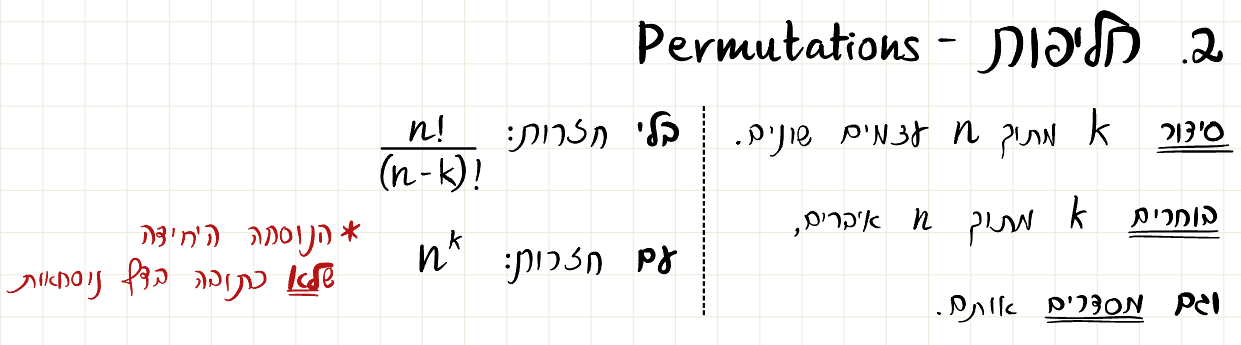 2. חליפות - Permutations
סידור k מתוך n עצמים שונים.
בוחרים k מתוך n איברים,
וגם מסדרים אותם.
בלי חזרות: n!/(n-k)!
עם חזרות: n^k
* הנוסחה היחידה
שלא כתובה בדף נוסחאות